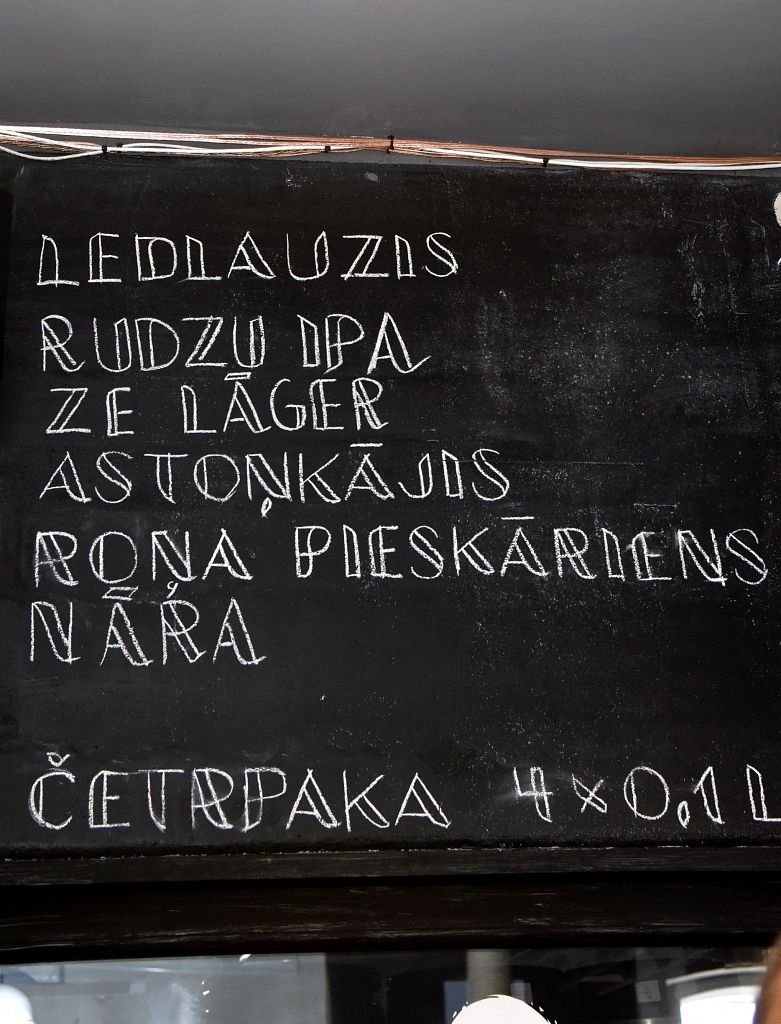 LEDLAUZIS
RUDZU IPA
ZE LĀGER
ASTOŅKĀJIS
ROŅA PIESKĀRIENS
NĀRA
ČETRPAKA 4 × 0,1 L